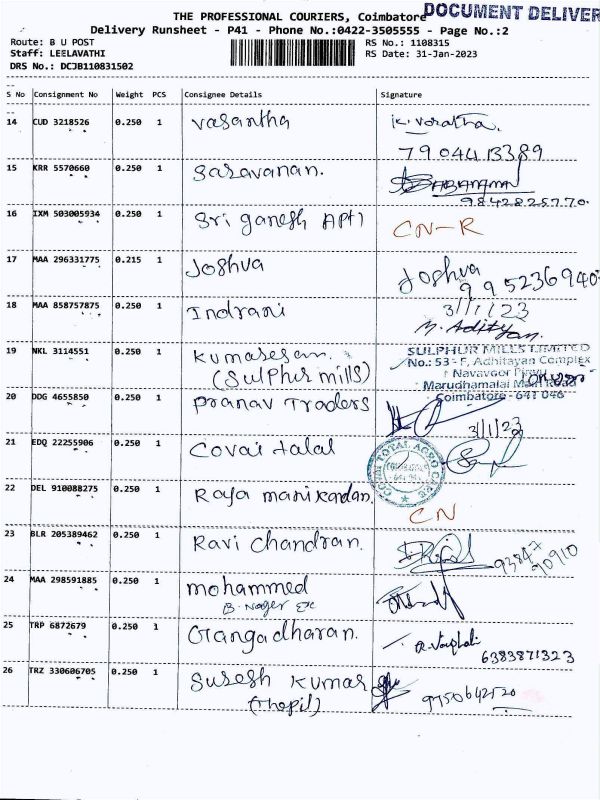 THE PROFESSIONAL COURIERS, Coimbatore
DOCUMENT DELIVER
Delivery Runsheet - P41 - Phone No.:0422-3505555 - Page No.:2
Route: B U POST
RS No.: 1108315
Staff: LEELAVATHI
RS Date: 31-Jan-2023
DRS No.: DCJB110831502
S No Consignment No Weight PCS Consignee Details Signature
14 CUD 3218526 0.250 1 Vasantha
7904413389
15 KRR 5570660 0.250 1 Saravanan.
9842825770.
16 IXM 503005934 0.250 1 Sri ganesh CN-R
17 MAA 296331775 0.215 1 Joshva Joshva
995236940
18 MAA 858757875 0.250 1 Indrani 31/1/23
M. Adityan.
19 NKL 3114551 0.250 1 Kumaresan. SULPHUR MILLS LIMITED
(Sulphur mills) No.: 53 - F, Adhitayan Complex
Navavoor Pirivu
Marudhamalai Main Road
Coimbatore - 641 046
20 DDG 4655850 0.250 1 Pranav Traders
31/1/23
21 EDQ 22255906 0.250 1 Covai talal
22 DEL 910088275 0.250 1 Raja manikandan. CN
23 BLR 205389462 0.250 1 Ravi Chandran. 93847
90910
24 MAA 298591885 0.250 1 mohammed
B. Nager
25 TRP 6872679 0.250 1 Gangadharan.
6383871323
26 TRZ 330606705 0.250 1 Suresh Kumar
(Thepil)